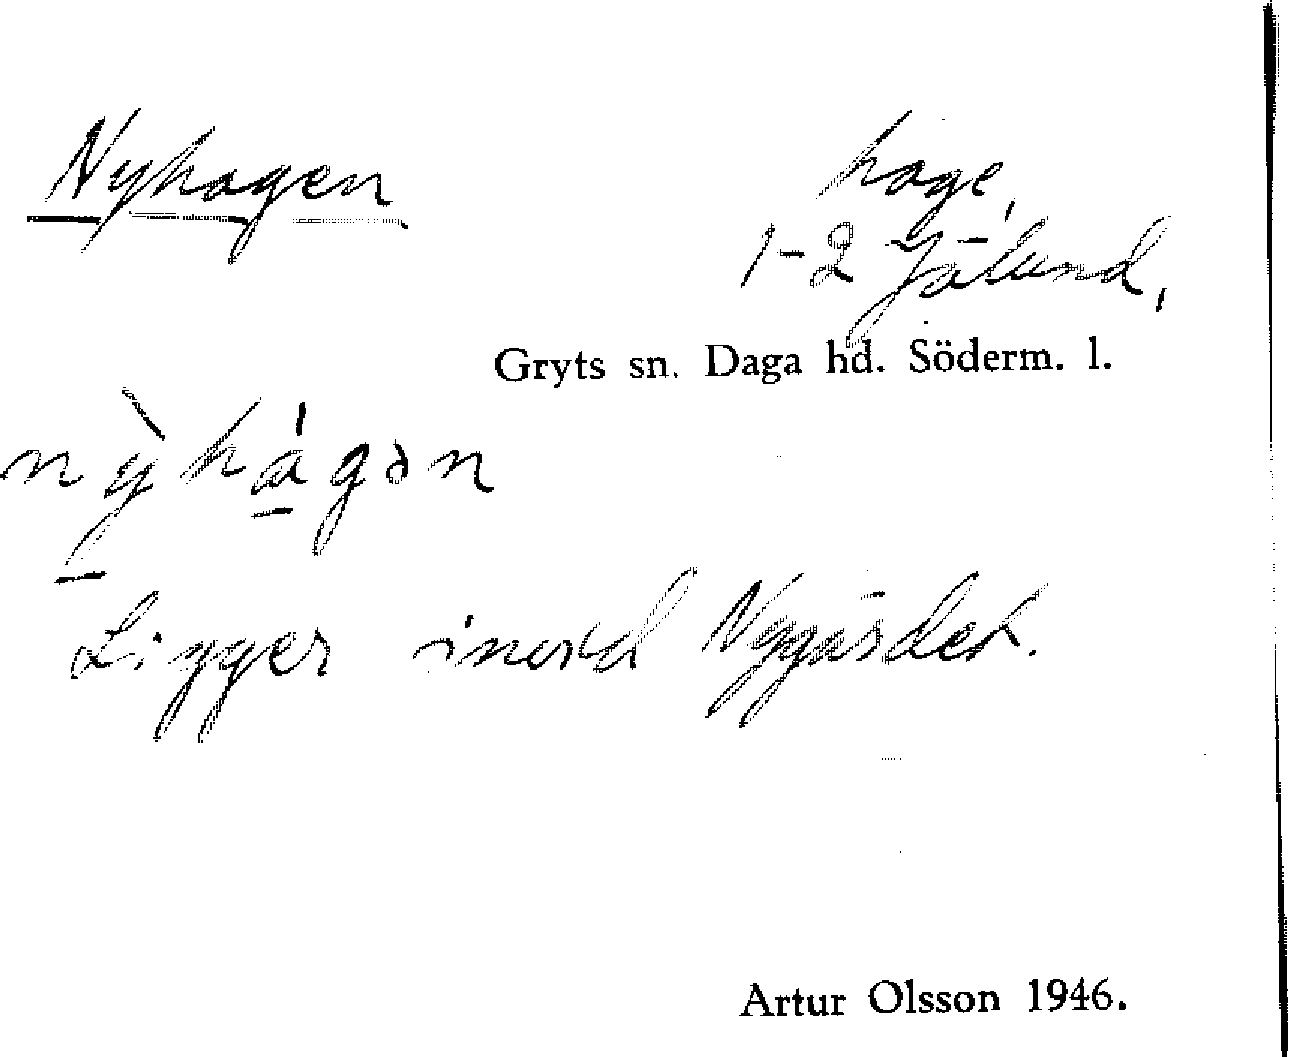 Nyhagen
hage,
1-2 Jälund,
Gryts sn. Daga hd. Söderm. l.
nỳhágən
Ligger inord Nygärdet.
Artur Olsson 1946.